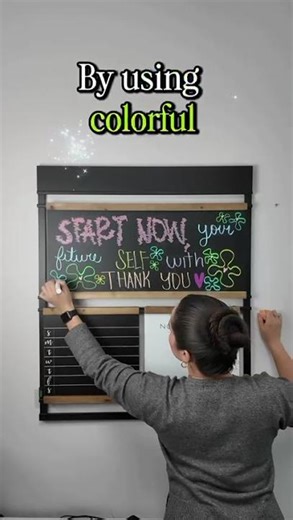 By using
colorful
START NOW, your
future SELF with
THANK YOU
S
M
T
W
T
F
S